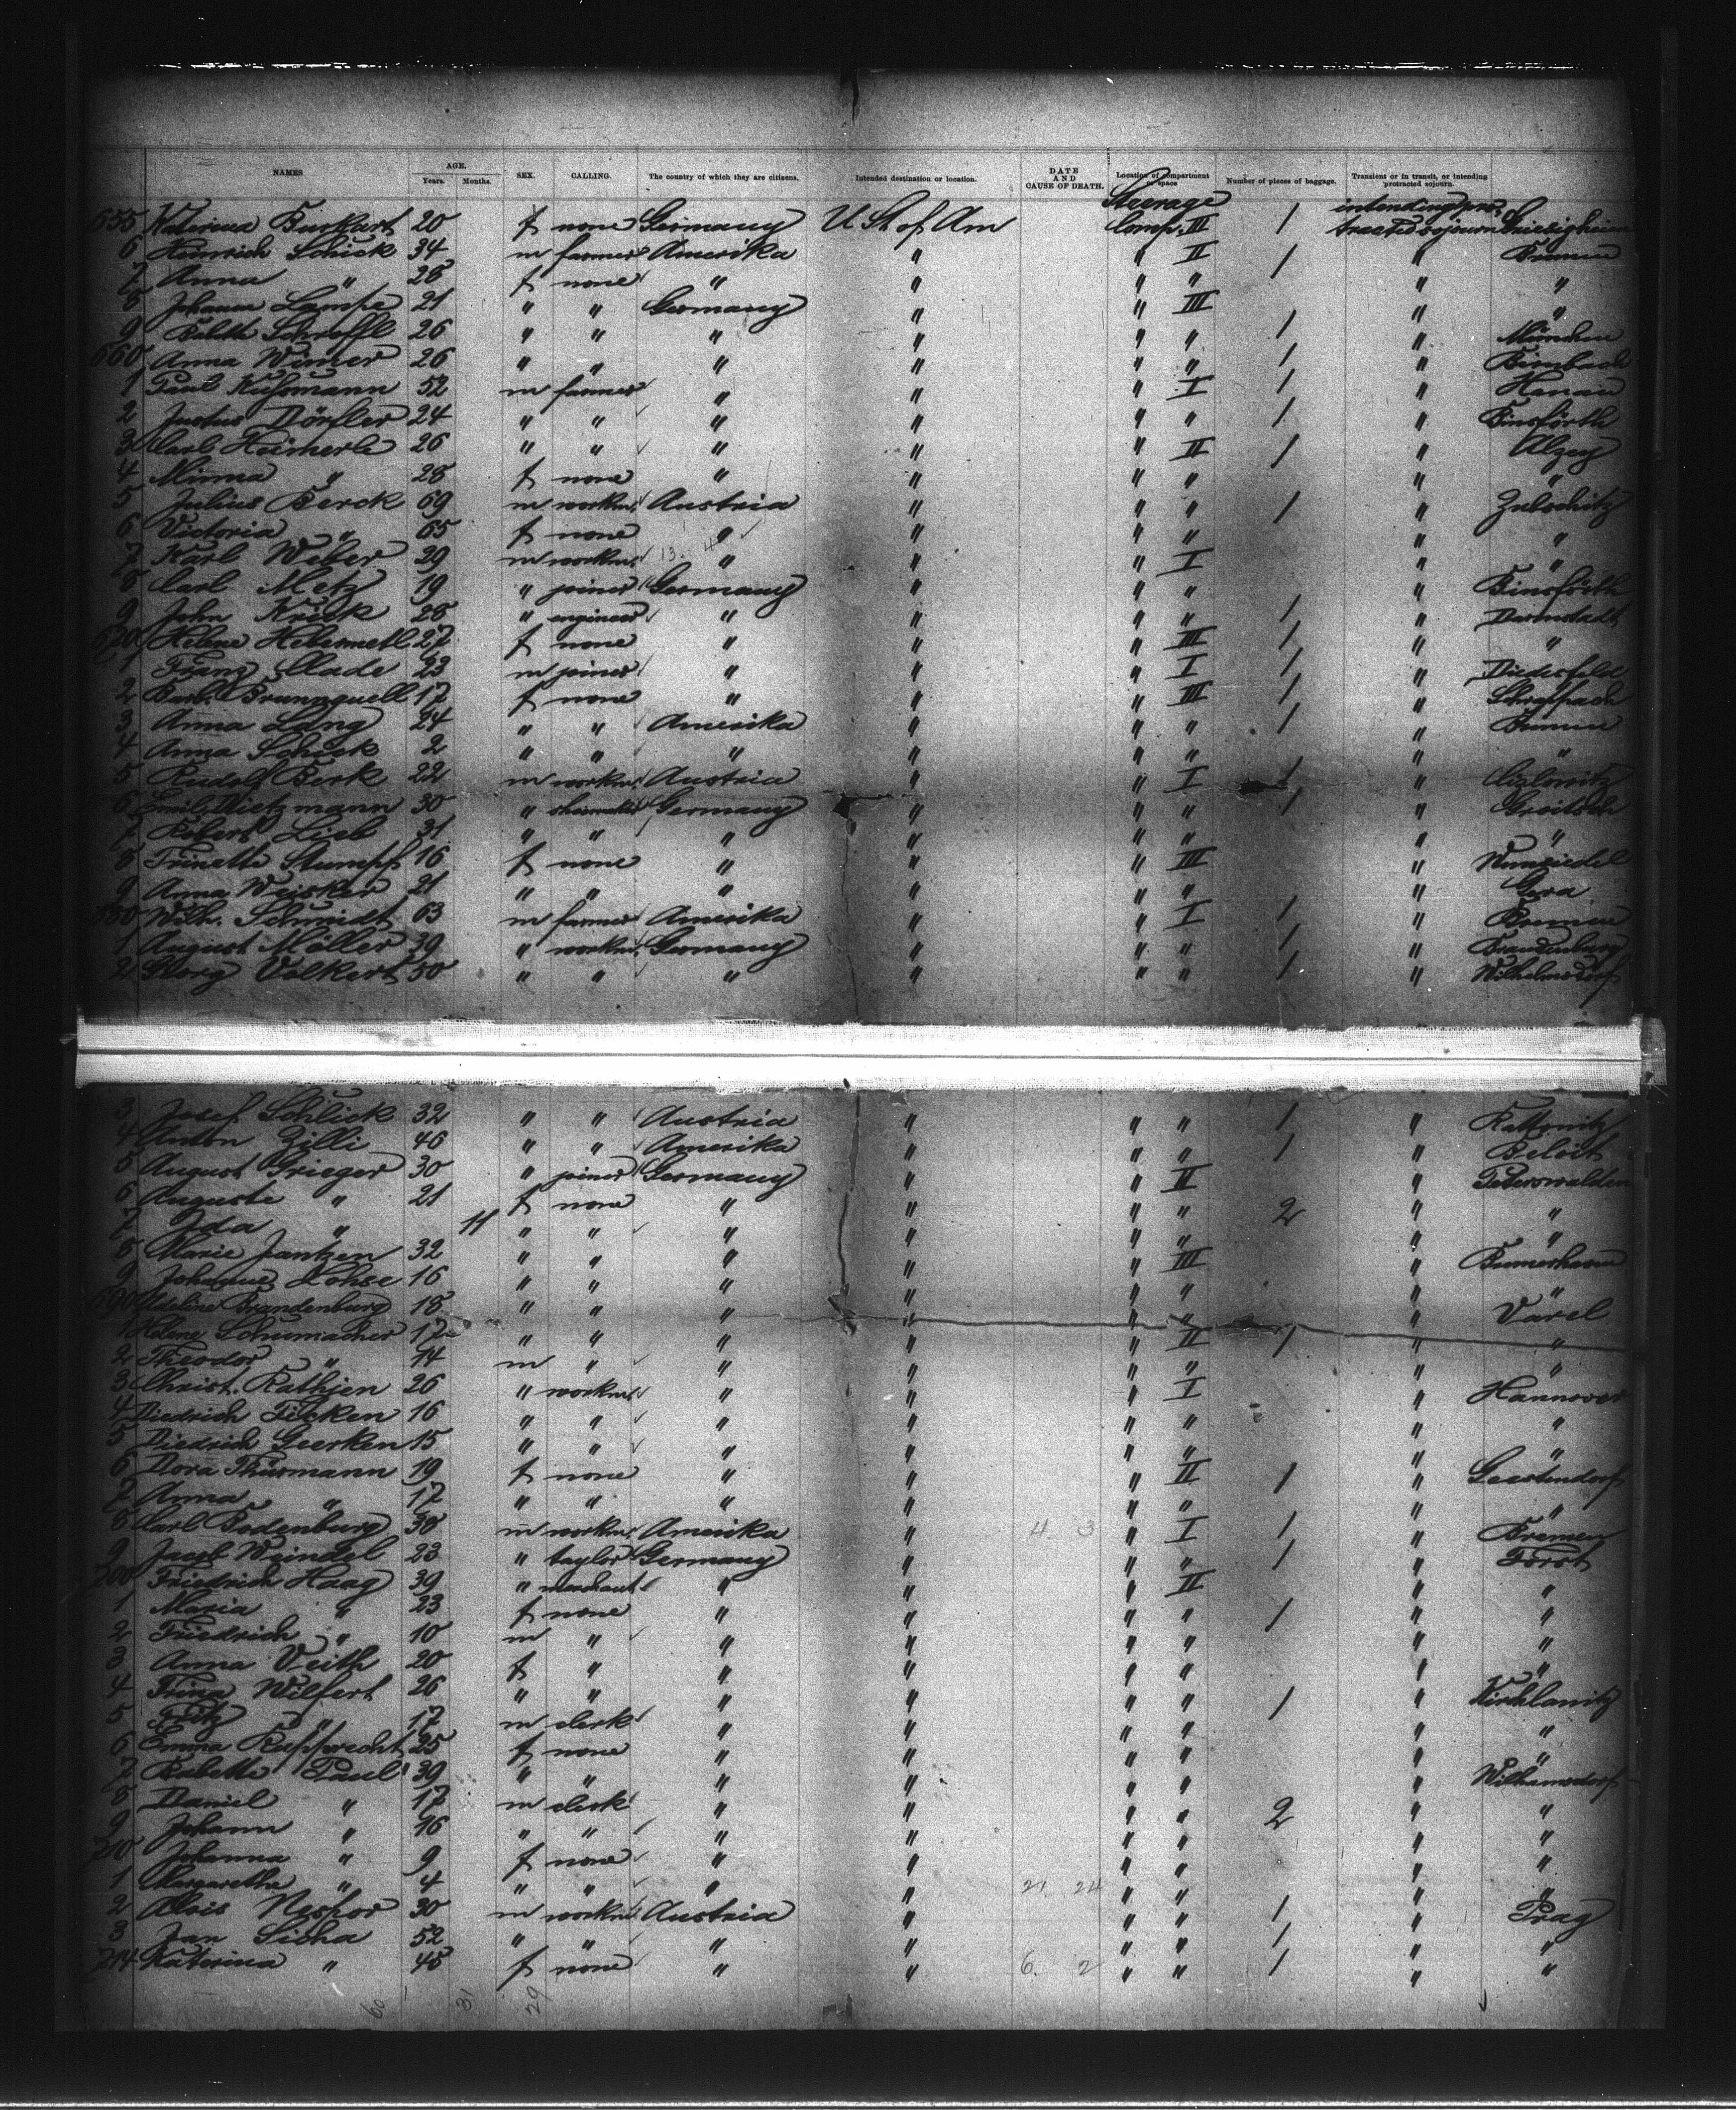 NAMES AGE. Years. Months. SEX. CALLING. The country of which they are citizens. Intended destination or location. DATE AND CAUSE OF DEATH. Location of compartment or space Number of pieces of baggage. Transient or in transit, or intending protracted sojourn.
Steerage intending pro-
655 Katerina Burkart 20 f none Germany U St of Am Comp. III 1 tracted sojourn Griesigheim
6 Heinrich Schick 34 m farmer Amerika " " II 1 " Bremen
7 Anna " 28 f none " " " " " "
8 Johanne Lampe 21 " " Germany " " III " "
9 26 " " " " " " 1 " München
660 Anna Wimer 26 " " " " " " 1 " Birnbach
1 Paul Kußmann 52 m farmer " " " I 1 " Hanau
2 Justus Dörfler 24 " " " " " " 1 " Binsförth
3 Carl Heimerle 26 " " " " " II 1 " Alzey
4 Minna " 28 f none " " " " " "
5 Julius Berck 69 m workm. Austria " " " 1 " Zubschitz
6 Victoria " 65 f none " " " " " "
7 Karl Weber 29 m workm. " " " I " "
8 Carl Metz 19 " joiner Germany " " " " Binsförth
9 John Krick 28 " engineer " " " " 1 " Darmstadt
670 Helene 27 f none " " " III 1 " "
1 Franz Clade 23 m joiner " " " I 1 " Diedesfeld
2 Barb. Brunnquell 17 f none " " " III 1 "
3 Anna Lang 24 " " Amerika " " " 1 " Bremen
4 Anna Schick 2 " " " " " " " "
5 Rudolf Berk 22 m workm. Austria " " I 1 " Cizlowitz
6 Emil Dietzmann 30 " Germany " " " 1 " Groitsch
7 Robert Lieb 31 " " " " " " " "
8 Trinette Stumpf 16 f none " " " III " Wunsiedel
9 Anna Weisker 21 " " " " " " " Gera
680 Wilh. Schmidt 63 m farmer Amerika " " I 1 " Bremen
1 August Möller 39 " workm. Germany " " " 1 " Brandenburg
2 Georg Volkert 50 " " " " " " 1 " Wilhelmsdorf
3 Josef Schlick 32 " " Austria " " " 1 " Kattowitz
4 Anton Zilli 46 " " Amerika " " " 1 " Beloit
5 August Grieger 30 " joiner Germany " " II " Peterswalden
6 Auguste " 21 f none " " " " 2 " "
7 Ida " 11 " " " " " " " "
8 Marie Jantzen 32 " " " " " III "
9 Johanne Lohse 16 " " " " " " " "
690 Adeline Brandenburg 18 " " " " " " " Varel
1 Helene Schumacher 17 " " " " " II 1 " "
2 Theodor " 14 m " " " " " " "
3 Christ. Rathjen 26 " workm. " " " I " Hannover
4 Diedrich Ficken 16 " " " " " " " "
5 Diedrich Geerken 15 " " " " " " " "
6 Dora Thürmann 19 f none " " " II 1 " Geestendorf
7 Anna " 17 " " " " " " " "
8 Carl Bodenburg 38 m workm. Amerika " 4 3 " I 1 " Bremen
9 Jacob Weindel 23 " taylor Germany " " " 1 " Forst
700 Friedrich Haag 39 " merchant " " " II " "
1 Maria " 23 f none " " " " 1 " "
2 Friedrich " 10 m " " " " " " "
3 Anna Veith 20 f " " " " " " "
4 Trina Wilfert 26 " " " " " " 1 " Kirchlamitz
5 Fritz " 17 m clerk " " " " " "
6 Emma Rupprecht 25 f none " " " " " "
7 Babette Paul 39 " " " " " " " Wilhemsdorf
8 Daniel " 17 m clerk " " " " 2 " "
9 Johann " 16 " " " " " " " "
710 Johanna " 9 f none " " " " " "
1 Margarethe " 4 " " " " 21 24 " " " "
2 Alois Nespor 30 m workm. Austria " " " 1 " Prag
3 Jan Sicha 52 " " " " " " 1 " "
714 Katerina " 48 f none " " 6. 2 " " 1 " "
60 31 29